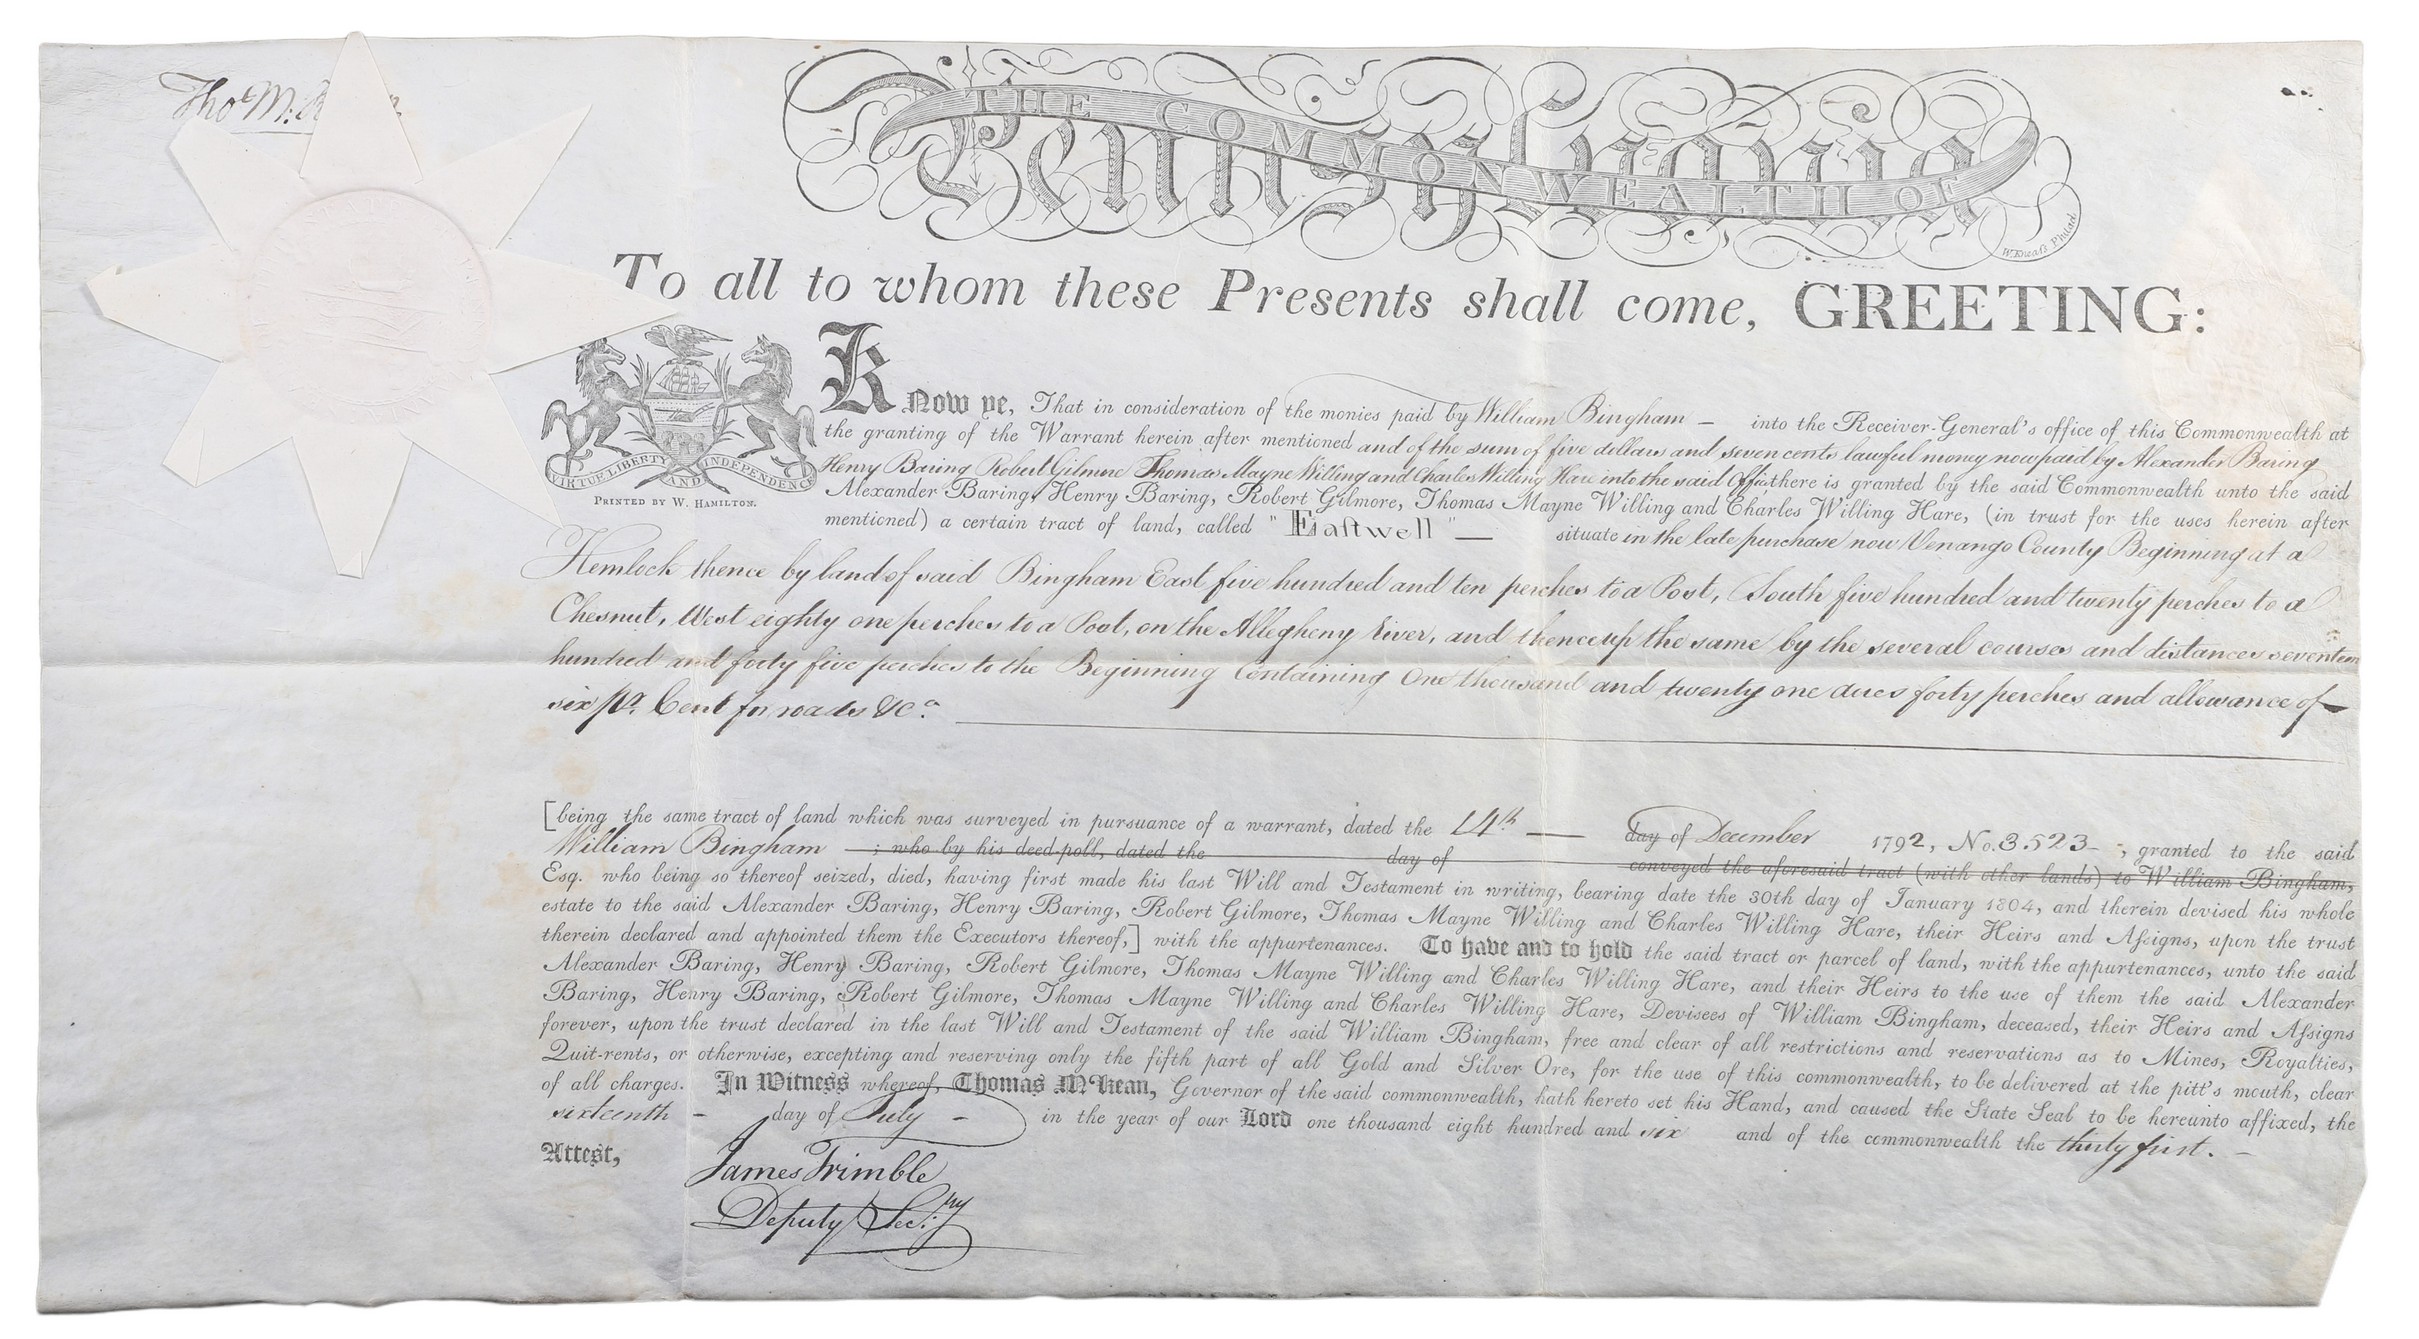 Tho M:
THE COMMONWEALTH OF
Pennsylvania
W. Kneaſs Philad.
To all to whom these Presents shall come, GREETING:
VIRTUE LIBERTY AND INDEPENDENCE
PRINTED BY W. HAMILTON.
Know ye, That in consideration of the monies paid by William Bingham – into the Receiver-General's office of this Commonwealth at
the granting of the Warrant herein after mentioned and of the sum of five dollars and seven cents lawful money now paid by Alexander Baring
Henry Baring Robert Gilmore Thomas Mayne Willing and Charles Willing Hare into the said Office there is granted by the said Commonwealth unto the said
Alexander Baring, Henry Baring, Robert Gilmore, Thomas Mayne Willing and Charles Willing Hare, (in trust for the uses herein after
mentioned) a certain tract of land, called "Eaſtwell" — situate in the late purchase now Venango County Beginning at a
Hemlock thence by land of said Bingham East five hundred and ten perches to a Post, South five hundred and twenty perches to a
Chesnut, West eighty one perches to a Post, on the Allegheny River, and thence up the same by the several courses and distances seventeen
hundred and forty five perches to the Beginning Containing One thousand and twenty one acres forty perches and allowance of
six pr. Cent for roads &c.a
[being the same tract of land which was surveyed in pursuance of a warrant, dated the 14th — day of December 1792, No. 3.523 - , granted to the said
William Bingham ; who by his deed-poll, dated the day of conveyed the aforesaid tract (with other lands) to William Bingham,
Esq. who being so thereof seized, died, having first made his last Will and Testament in writing, bearing date the 30th day of January 1804, and therein devised his whole
estate to the said Alexander Baring, Henry Baring, Robert Gilmore, Thomas Mayne Willing and Charles Willing Hare, their Heirs and Aſsigns, upon the trust
therein declared and appointed them the Executors thereof,] with the appurtenances. To have and to hold the said tract or parcel of land, with the appurtenances, unto the said
Alexander Baring, Henry Baring, Robert Gilmore, Thomas Mayne Willing and Charles Willing Hare, and their Heirs to the use of them the said Alexander
Baring, Henry Baring, Robert Gilmore, Thomas Mayne Willing and Charles Willing Hare, Devisees of William Bingham, deceased, their Heirs and Aſsigns
forever, upon the trust declared in the last Will and Testament of the said William Bingham, free and clear of all restrictions and reservations as to Mines, Royalties,
Quit-rents, or otherwise, excepting and reserving only the fifth part of all Gold and Silver Ore, for the use of this commonwealth, to be delivered at the pitt's mouth, clear
of all charges. In Witness whereof, Thomas M'Kean, Governor of the said commonwealth, hath hereto set his Hand, and caused the State Seal to be hereunto affixed, the
sixteenth – day of July – in the year of our Lord one thousand eight hundred and six and of the commonwealth the thirty first. –
Attest,
James Trimble
Deputy Sec:ry